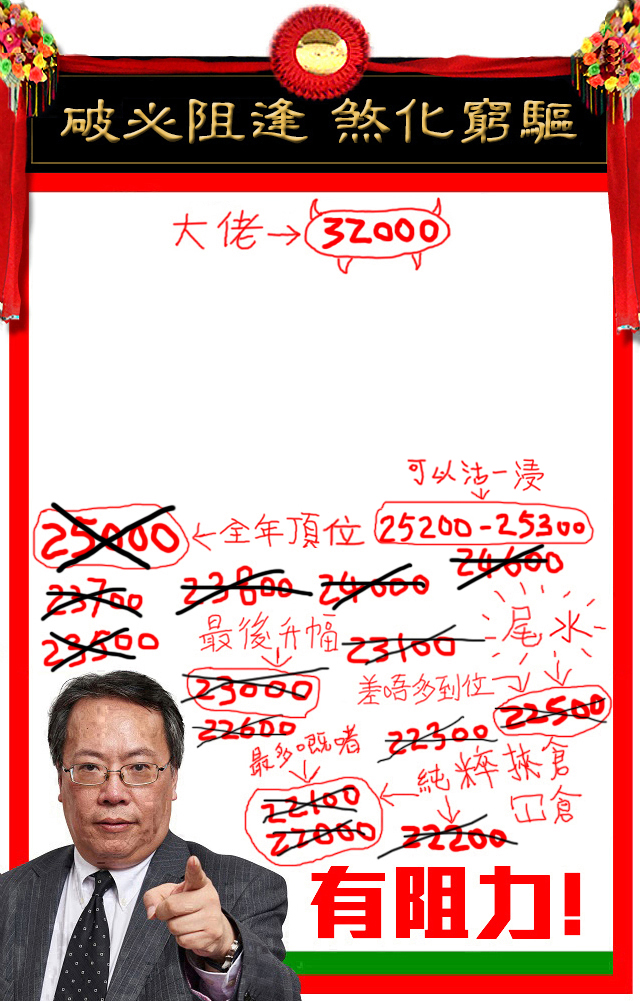 破必阻逢 煞化窮驅
大佬→32000
可以沽一浸
25000←全年頂位 25200-25300
24600
23700 23800 24000
尾水
23500 最後升幅 23100
23000 差唔多到位 22500
22600 22300
最多嘅啫 純粹挾倉
22100 冚倉
22000 22200
有阻力!